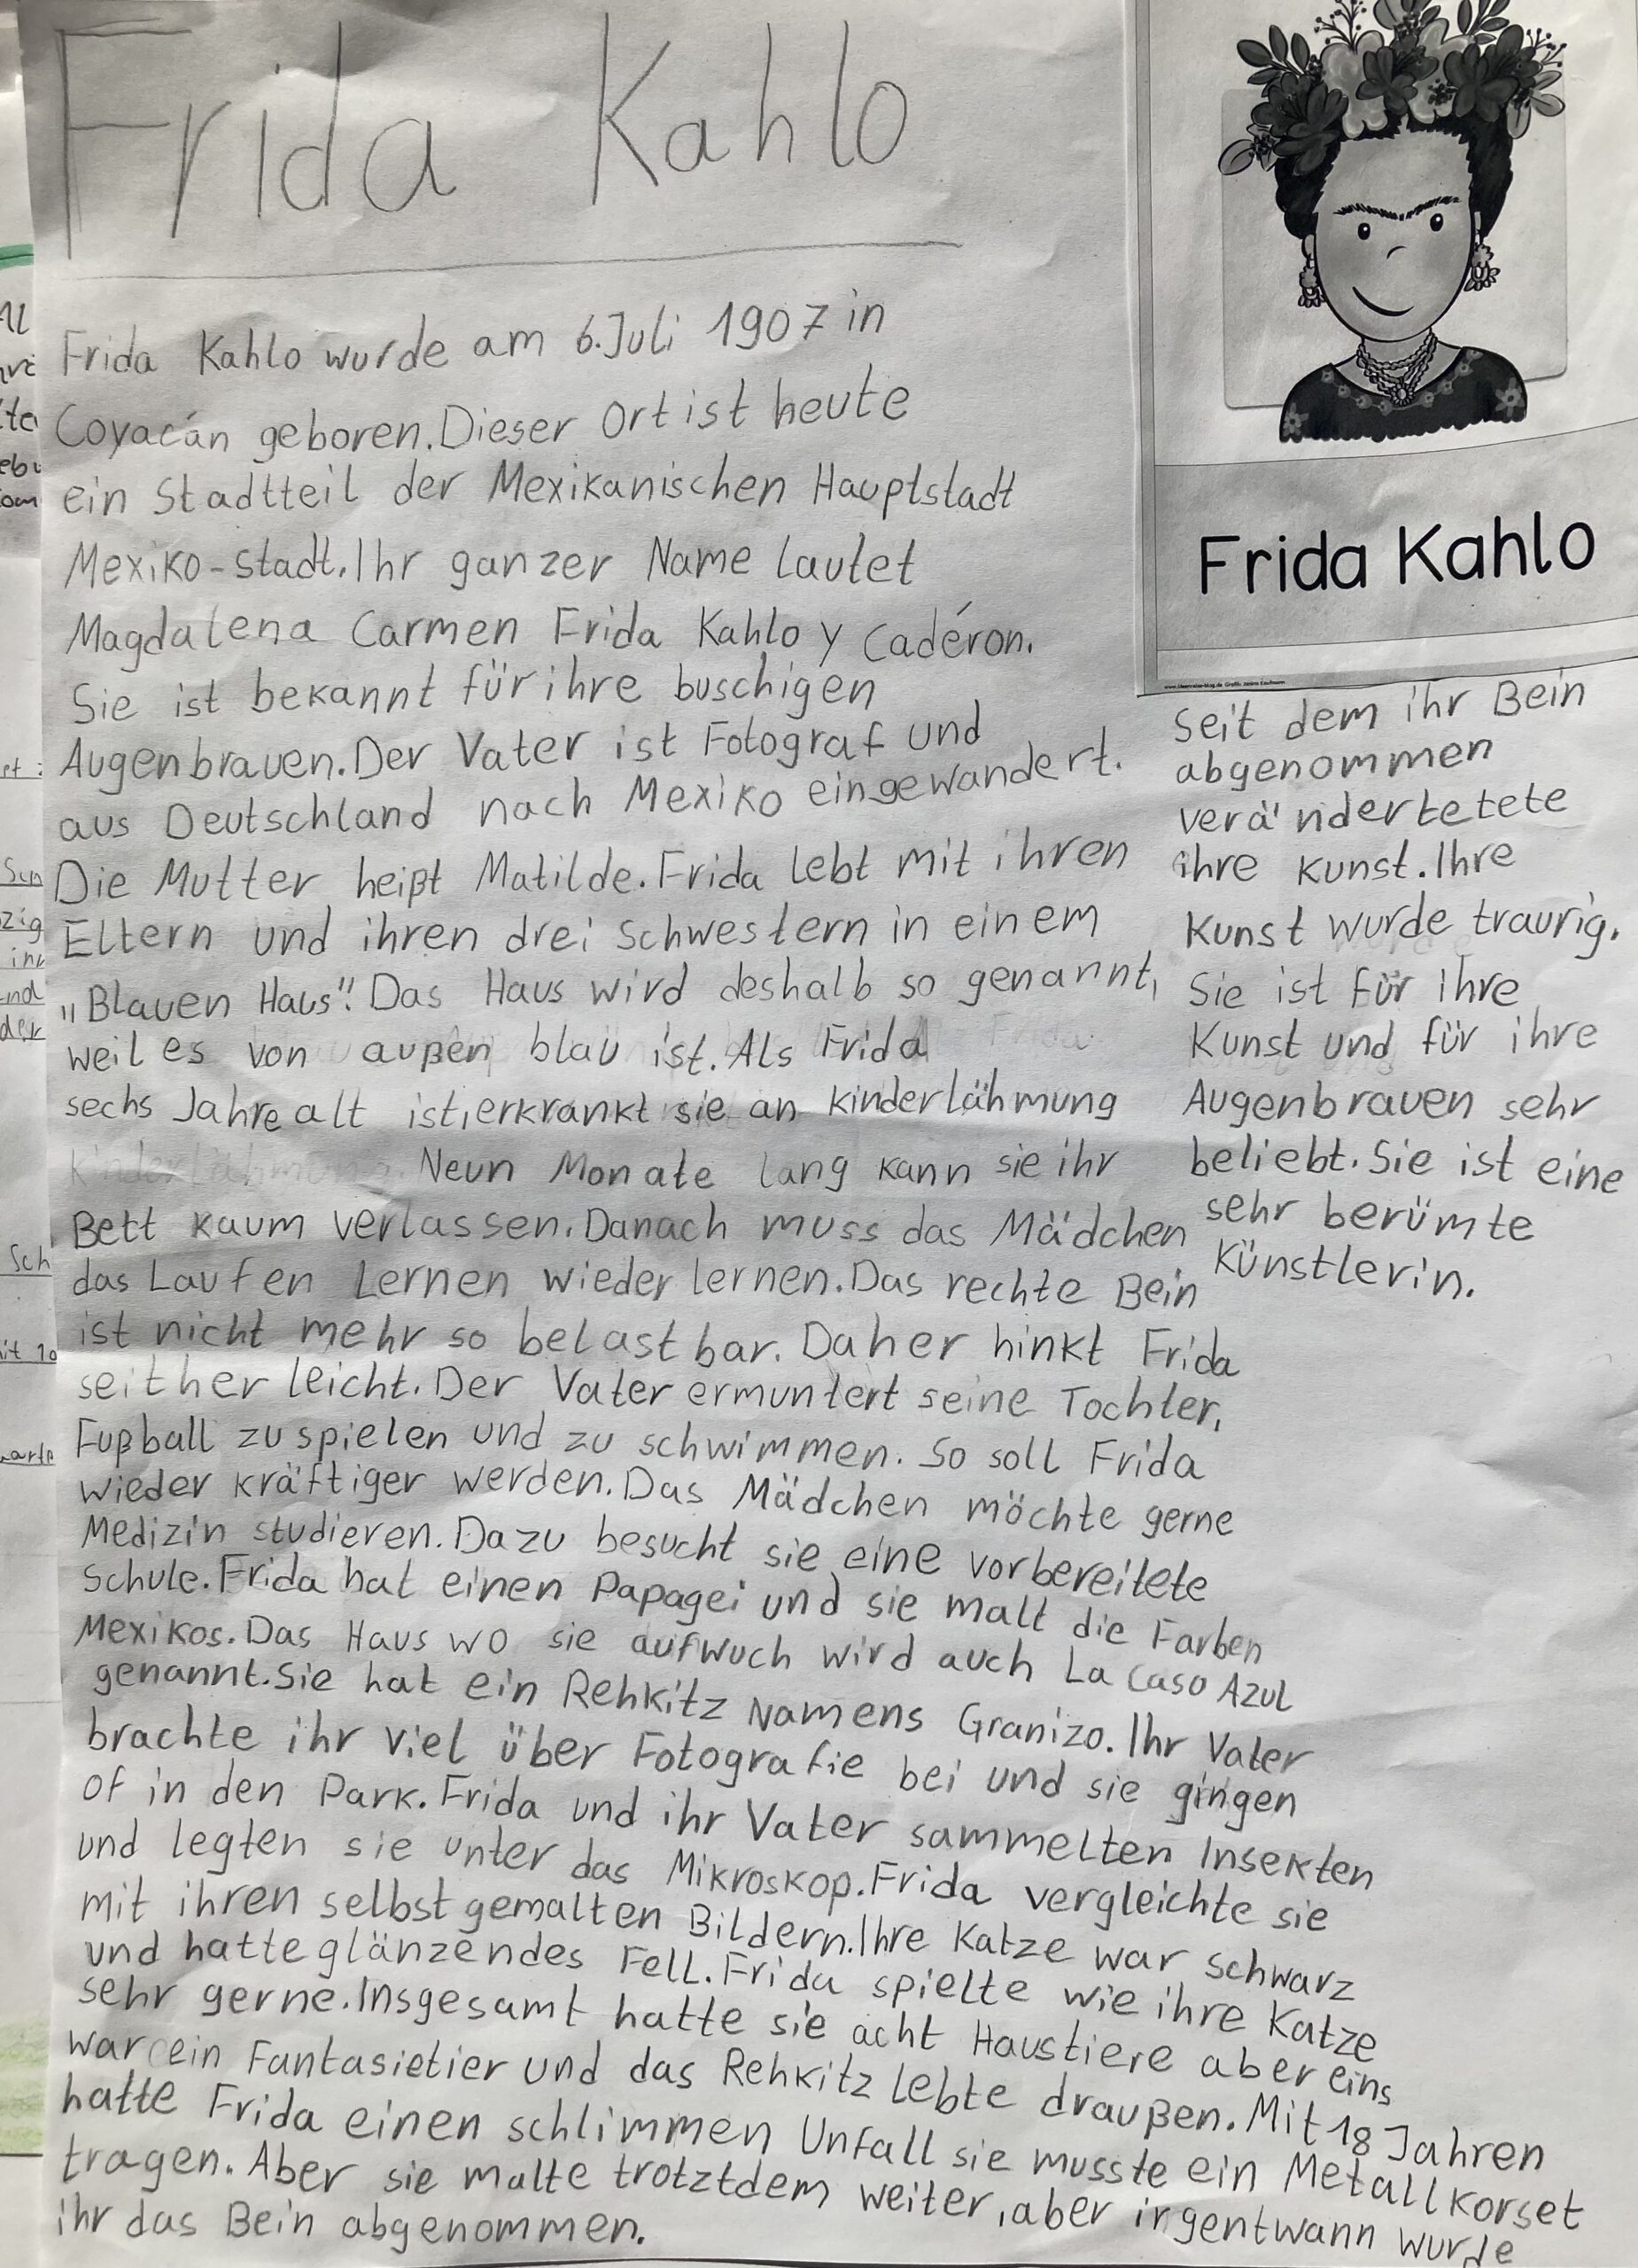 Frida Kahlo
Frida Kahlo wurde am 6. Juli 1907 in
Coyacán geboren. Dieser Ort ist heute
ein Stadtteil der Mexikanischen Hauptstadt
Mexiko-Stadt. Ihr ganzer Name lautet
Magdalena Carmen Frida Kahlo y Cadéron.
Sie ist bekannt für ihre buschigen
Augenbrauen. Der Vater ist Fotograf und
aus Deutschland nach Mexiko eingewandert.
Die Mutter heißt Matilde. Frida lebt mit ihren
Eltern und ihren drei Schwestern in einem
„Blauen Haus". Das Haus wird deshalb so genannt,
weil es von außen blau ist. Als Frida
sechs Jahre alt ist, erkrankt sie an Kinderlähmung
Neun Monate lang kann sie ihr
Bett kaum verlassen. Danach muss das Mädchen
das Laufen Lernen wieder lernen. Das rechte Bein
ist nicht mehr so belastbar. Daher hinkt Frida
seither leicht. Der Vater ermuntert seine Tochter,
Fußball zu spielen und zu schwimmen. So soll Frida
wieder kräftiger werden. Das Mädchen möchte gerne
Medizin studieren. Dazu besucht sie eine vorbereitete
Schule. Frida hat einen Papagei und sie malt die Farben
Mexikos. Das Haus wo sie aufwuch wird auch La Caso Azul
genannt. Sie hat ein Rehkitz Namens Granizo. Ihr Vater
brachte ihr viel über Fotografie bei und sie gingen
of in den Park. Frida und ihr Vater sammelten Insekten
und legten sie unter das Mikroskop. Frida vergleichte sie
mit ihren selbst gemalten Bildern. Ihre Katze war schwarz
und hatte glänzendes Fell. Frida spielte wie ihre Katze
sehr gerne. Insgesamt hatte sie acht Haustiere aber eins
war ein Fantasietier und das Rehkitz lebte draußen. Mit 18 Jahren
hatte Frida einen schlimmen Unfall sie musste ein Metallkorset
tragen. Aber sie malte trotztdem weiter, aber irgentwann wurde
ihr das Bein abgenommen.
Frida Kahlo
Seit dem ihr Bein
abgenommen
verändertetete
ihre Kunst. Ihre
Kunst wurde traurig.
Sie ist für ihre
Kunst und für ihre
Augenbrauen sehr
beliebt. Sie ist eine
sehr berümte
Künstlerin.